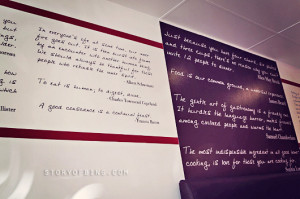 you
but
ings,
User,
In everyone's life at some time, our inner
fire goes out. It is then burst into flame
by an encounter with another human being.
We should always be thankful for those
people who rekindle the inner spirit.
how
ing
is
To eat is human, to digest, divine.
Charles Townsend Copeland
A good conscience is a continual feast.
Francis Bacon
Just because you have four chairs, six plates
and three cups, that's no reason why you can't
invite 12 people to dinner.
Food is our common ground, a universal
The gentle art of gastronomy is a friendly
It hurdles the language barrier, makes
among civilized people and warms the heart.
Samuel Chamberlain
The most indispensable ingredient of all good
cooking, is love for those you are cooking for.
STORYOFBING.COM